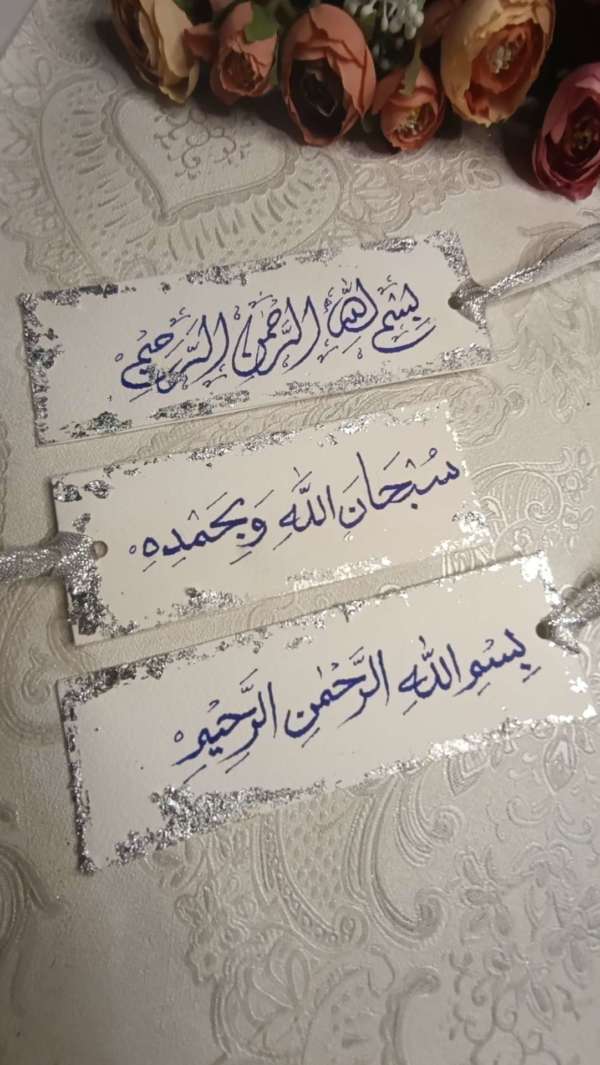 بِسْمِ اللهِ الرَّحْمٰنِ الرَّحِيْمِ
سُبْحَانَ اللَّهِ وَبِحَمْدِهِ
بِسْمِ اللَّهِ الرَّحْمٰنِ الرَّحِيْمِ